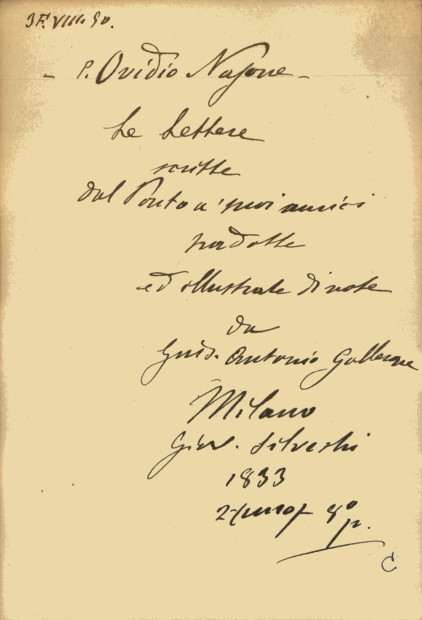 3F.VIII.50.
- P. Ovidio Nasone -
Le Lettere
scritte
dal Ponto a' suoi amici
tradotte
ed illustrate di note
da
Guid. Antonio
Milano
Giov. Silvestri
1833
8°
C